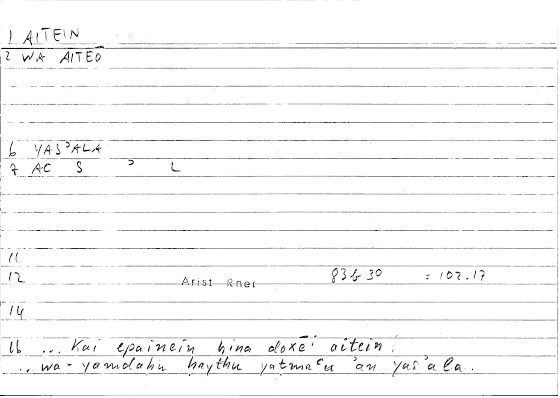 1 AITEIN
2 WA AITEO
6 YAS'ALA
7 AC S ' L
11
12 Arist Rhet 83b30 = 102.17
14
16 ... Kai epainein hina doxēi aitein.
.. wa-yamdahu haythu yatma'u 'an yas'ala..